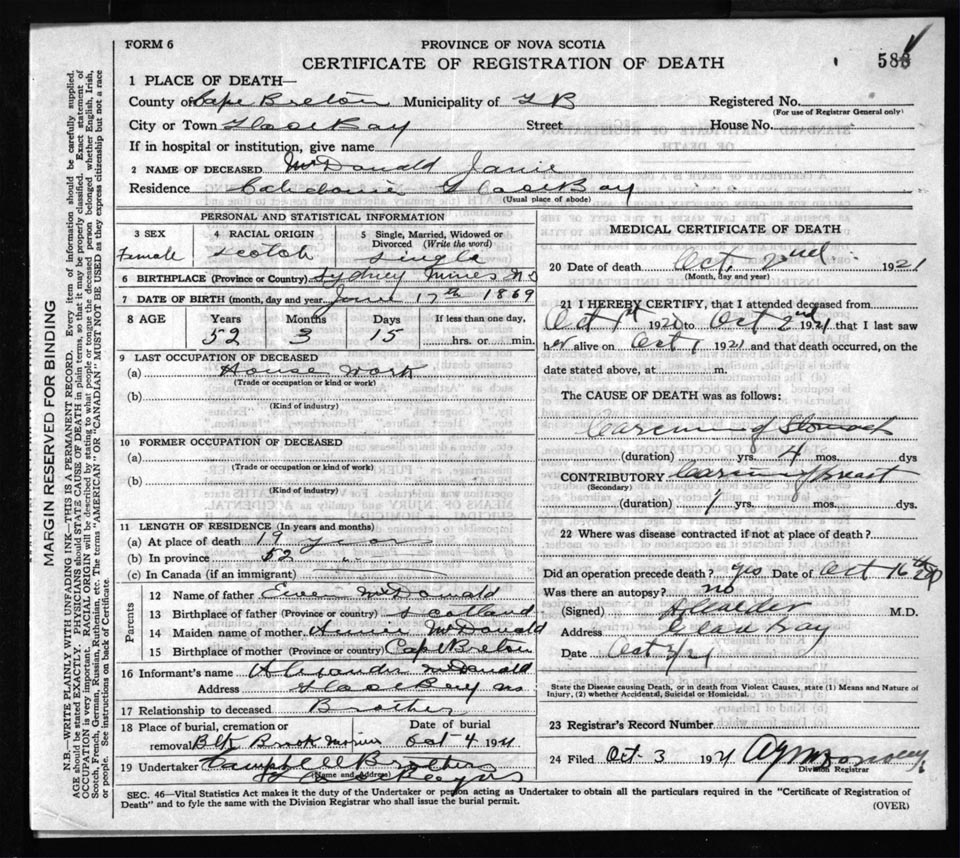 FORM 6
PROVINCE OF NOVA SCOTIA
CERTIFICATE OF REGISTRATION OF DEATH
588
1 PLACE OF DEATH—
County of Cape Breton Municipality of G B Registered No.
(For use of Registrar General only)
City or Town Glace Bay Street House No.
If in hospital or institution, give name
2 NAME OF DECEASED McDonald Janie
Residence Caledonia Glace Bay
(Usual place of abode)
PERSONAL AND STATISTICAL INFORMATION
3 SEX
Female
4 RACIAL ORIGIN
Scotch
5 Single, Married, Widowed or Divorced (Write the word)
Single
6 BIRTHPLACE (Province or Country) Sydney Mines N S
7 DATE OF BIRTH (month, day and year) June 17th 1869
8 AGE Years Months Days If less than one day,
52 3 15 hrs. or min.
9 LAST OCCUPATION OF DECEASED
(a) House work
(Trade or occupation or kind or work)
(b)
(Kind of industry)
10 FORMER OCCUPATION OF DECEASED
(a)
(Trade or occupation or kind or work)
(b)
(Kind of industry)
11 LENGTH OF RESIDENCE (In years and months)
(a) At place of death 19 years
(b) In province 52 "
(c) In Canada (if an immigrant)
Parents
12 Name of father Ewen McDonald
13 Birthplace of father (Province or country) Scotland
14 Maiden name of mother Annie McDonald
15 Birthplace of mother (Province or Country) Cape Breton
16 Informant's name Alexander McDonald
Address Glace Bay NS
17 Relationship to deceased Brother
18 Place of burial, cremation or removal Date of burial
Blk Brook Oct 4 1921
19 Undertaker Campbell Brothers
(Name and Address)
MEDICAL CERTIFICATE OF DEATH
20 Date of death Oct. 2nd 1921
(Month, day and year)
21 I HEREBY CERTIFY, that I attended deceased from
Oct 1st 1921 to Oct 2nd 1921 that I last saw
her alive on Oct 1 1921 and that death occurred, on the
date stated above, at m.
The CAUSE OF DEATH was as follows:
Carcinoma of Stomach
(duration) yrs. 4 mos. dys
CONTRIBUTORY Carcin of breast
(Secondary)
(duration) yrs. mos. dys.
22 Where was disease contracted if not at place of death?
Did an operation precede death? yes Date of Oct 16th
Was there an autopsy? no
(Signed) M.D.
Address Glace Bay
Date Oct
State the Disease causing Death, or in death from Violent Causes, state (1) Means and Nature of
Injury, (2) whether Accidental, Suicidal or Homicidal.
23 Registrar's Record Number
24 Filed Oct 3 1921
Division Registrar
SEC. 46—Vital Statistics Act makes it the duty of the Undertaker or person acting as Undertaker to obtain all the particulars required in the "Certificate of Registration of
Death" and to fyle the same with the Division Registrar who shall issue the burial permit.
(OVER)
MARGIN RESERVED FOR BINDING
N.B.—WRITE PLAINLY WITH UNFADING INK—THIS IS A PERMANENT RECORD. Every item of information should be carefully supplied.
AGE should be stated EXACTLY. PHYSICIANS should STATE CAUSE OF DEATH in plain terms, so that it may be properly classified. Exact statement of
OCCUPATION is very important. RACIAL ORIGIN will be described by stating to what people or tongue the deceased person belonged whether English, Irish,
Scotch, French, German, Russian, Ruthenian, etc. The terms "AMERICAN" OR "CANADIAN" MUST NOT BE USED as they express citizenship but not a race
or people. See instructions on back of Certificate.